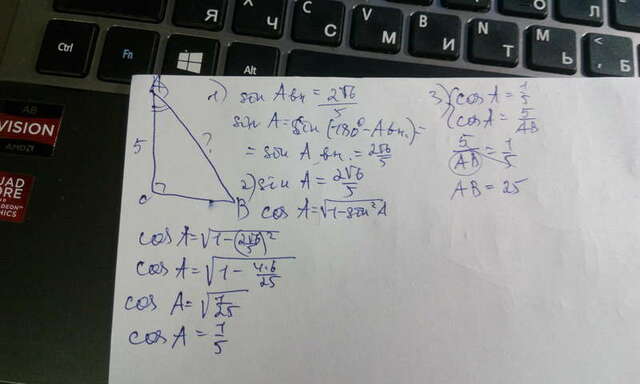 Я Ч С М И Т О Л Ь Б
X C V B N M <
Ctrl Fn Alt
AB
VISION
AMD
QUAD
CORE
RADEON
GRAPHICS
A
5
?
C
B
1) sin A вн. = 2√6/5
sin A = sin (180° - A вн.) =
= sin A вн. = 2√6/5
2) sin A = 2√6/5
cos A = √1-sin²A
cos A = √1-(2√6/5)²
cos A = √1 - 4·6/25
cos A = √1/25
cos A = 1/5
3) { cos A = 1/5
cos A = 5/AB
5/AB = 1/5
AB = 25